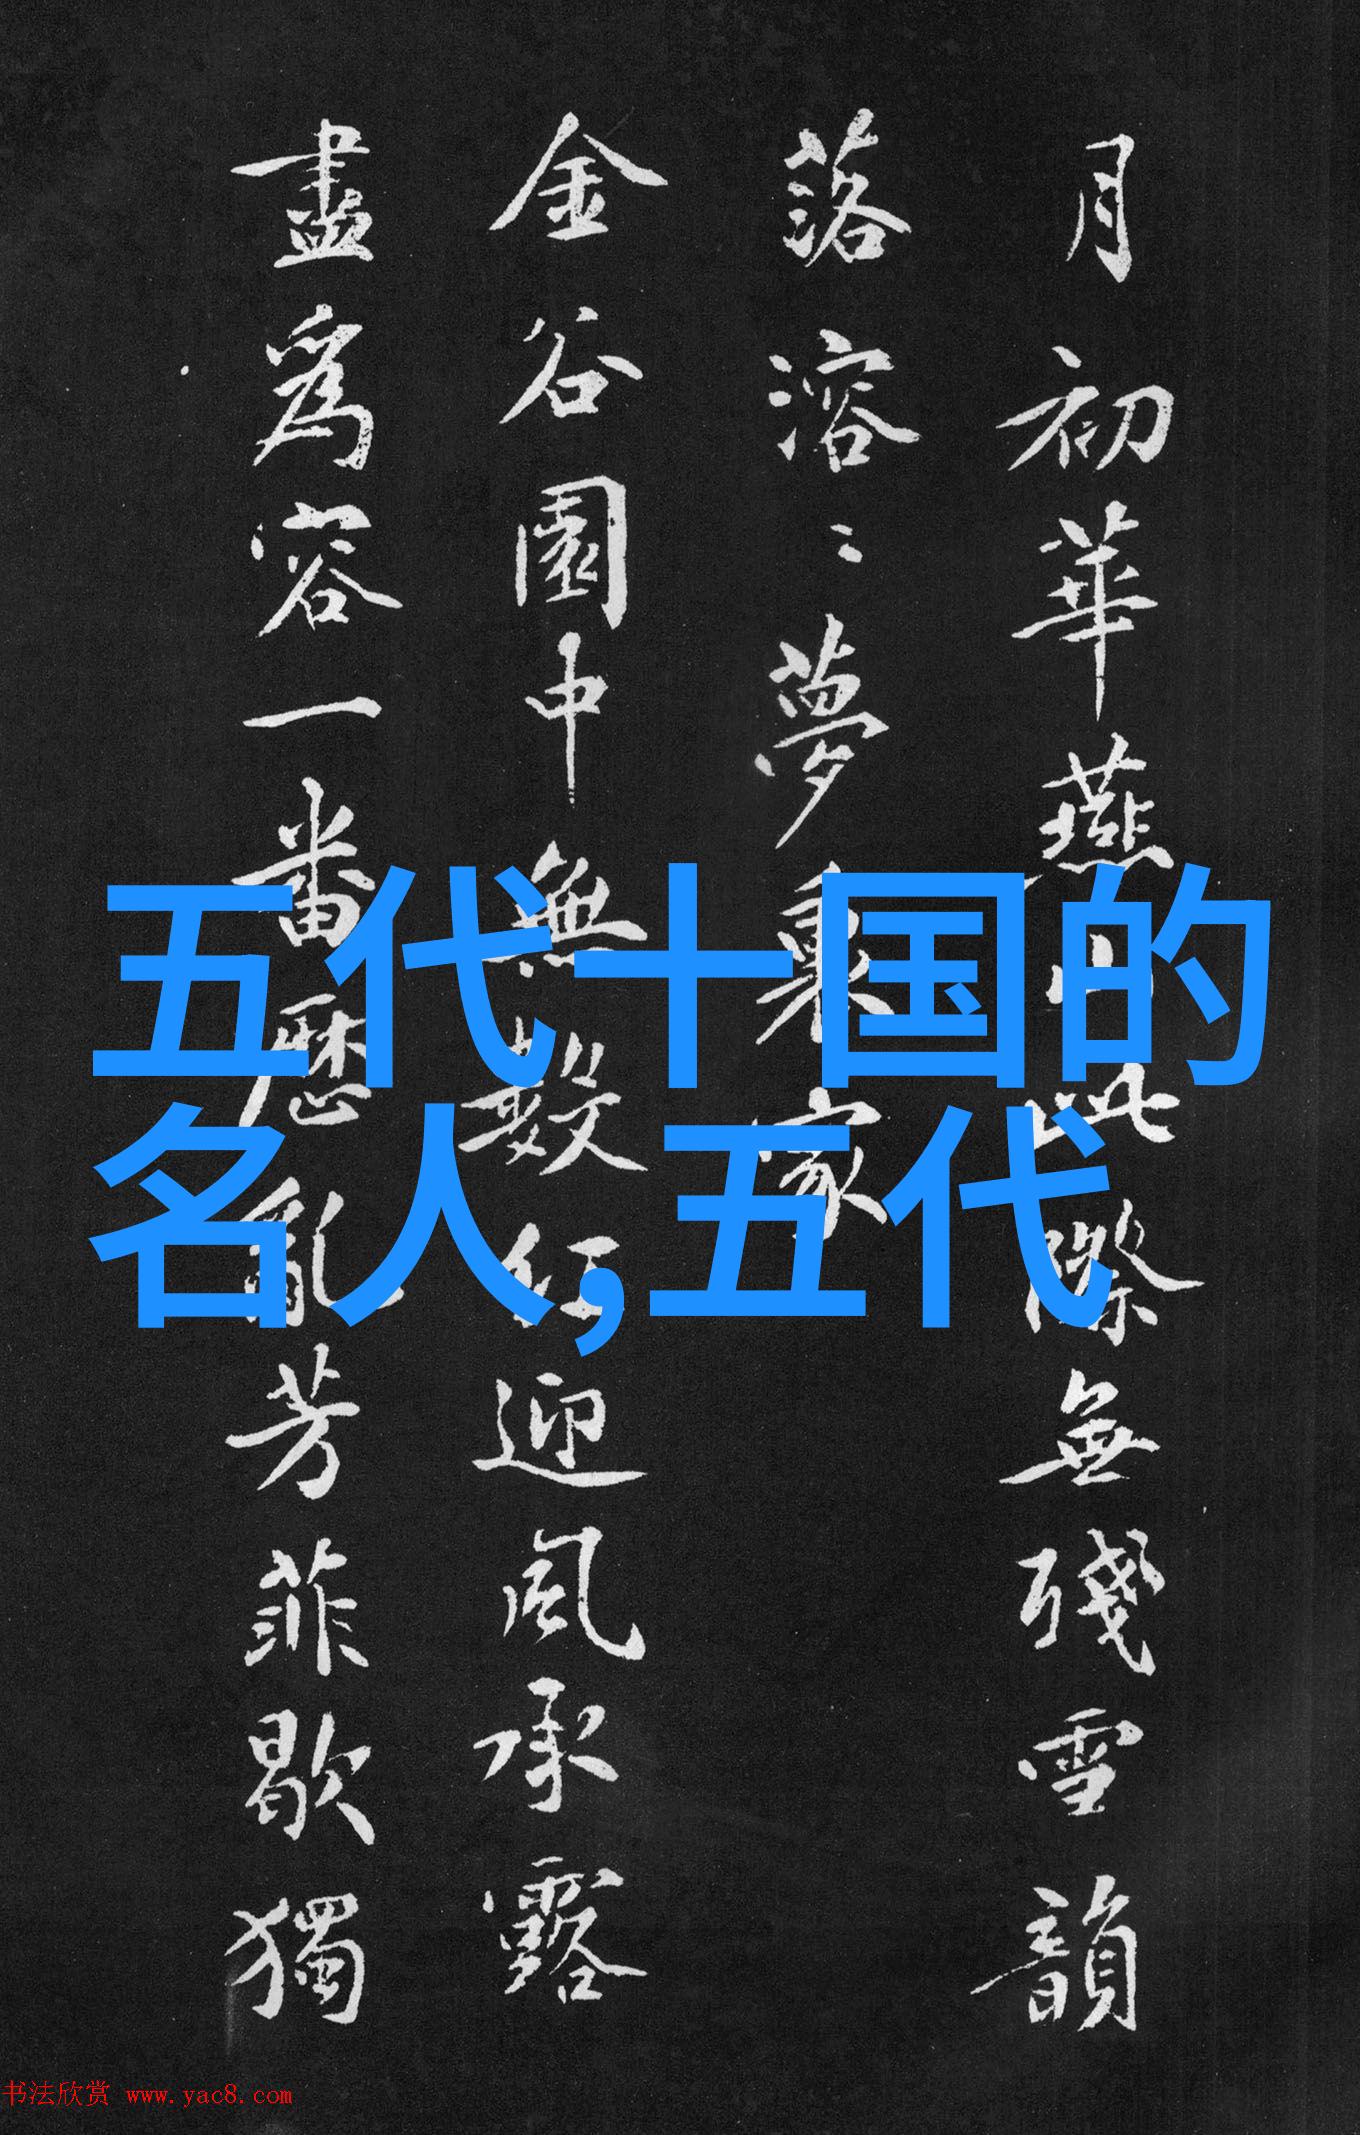 月初華燕山此際無殘雪韻
落溶〻夢裏家
金谷園中無數紅迎風承露
盡為容一番歷亂芳菲歇獨
五代十国的
名人,五代
书法欣赏 www.yac8.com